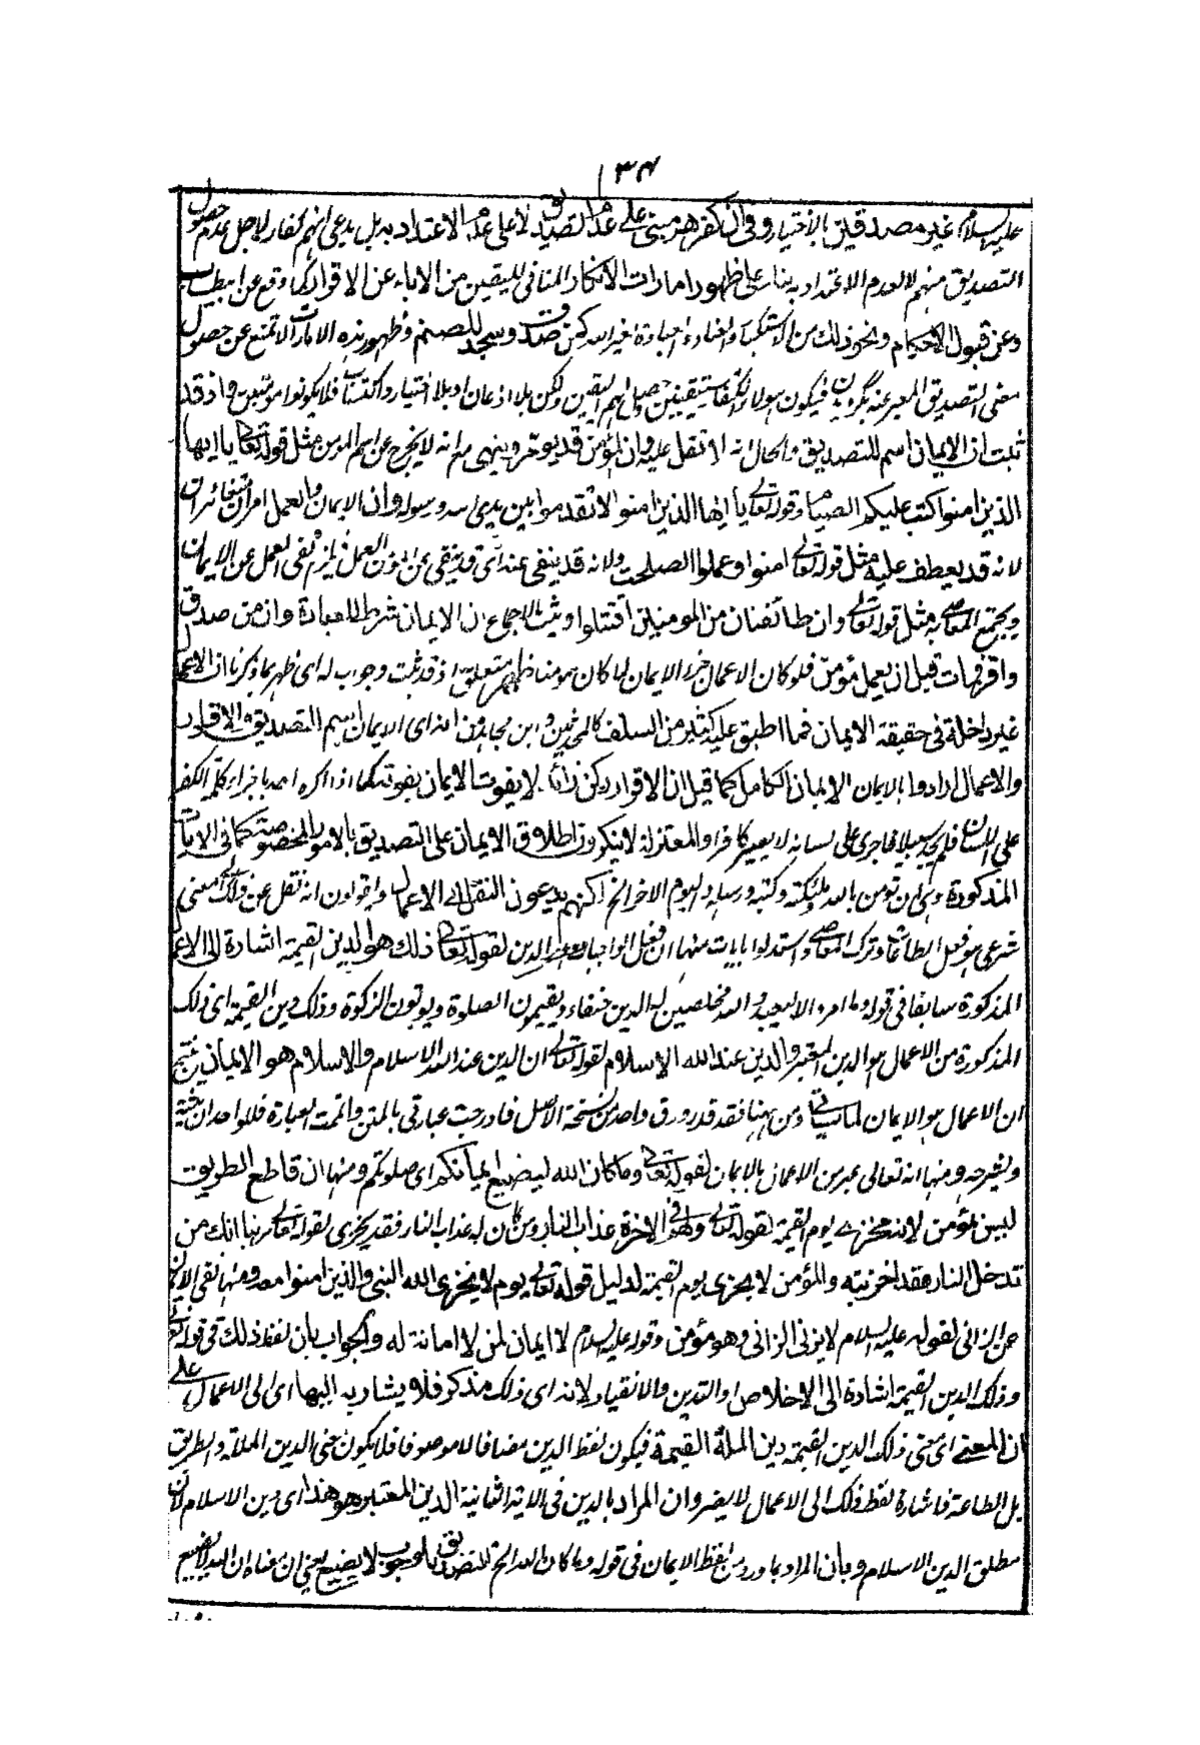 ١٣٤
عليه السلام غير مصدقين بالاختيار وفي ان كفرهم مبنى على عدم التصديق لا على عدم الاعتداد به بل يدعى انهم كفار لاجل عدم حصول
التصديق منهم لا لعدم الاعتداد به بناء على ظهور امارات الانكار المنافى لليقين من الاباء عن الاقرار كما وقع عن ابيطالب
وعن قبول الاحكام ونحو ذلك من الاستكبار وعبادة غير الله كمن صدق وسجد للصنم وظهور هذه الامارات لا تمنع عن حصول
معنى التصديق المعبر عنه بگرویدن فيكون هولاء الكفار مستيقنين حصل لهم اليقين ولكن بلا اذعان او بلا اختيار واكتساب فلا يكونوا مؤمنين واذ قد
ثبت ان الايمان اسم للتصديق والحال انه لا تقل عليه وان المؤمن قد يومر وينهى مع انه لا يخرج عن اسم المومن مثل قوله تعالى يا ايها
الذين امنوا كتب عليكم الصيام وقوله تعالى يا ايها الذين امنوا لا تقدموا بين يدى الله ورسوله وان الايمان والعمل امران متغائران
لانه قد يعطف عليه مثل قوله تعالى امنوا وعملوا الصلحت ولانه قد ينفى عنه اى قد ينفى عن المؤمن العمل فيلزم نفى العمل عن الايمان
ويجتمع المعاصى به مثل قوله تعالى وان طائفتان من المومنين اقتتلوا وثبت بالاجماع ان الايمان شرط للعبادة وان من صدق
واقر فمات قبل ان يعمل مؤمن فلو كان الاعمال جزء الايمان لما كان مومنا ظهر متعلق اذ قد ثبت وجواب له اى ظهر بما ذكرنا ان الاعمال
غير داخلة فى حقيقة الايمان فما اطبق عليه كثير من السلف كالمحدثين وابن مجاهد من انه اى الايمان اسم التصديق والاقرار
والاعمال ارادوا بالايمان الايمان الكامل كما قيل ان الاقرار ركن زائد لا يفوت الايمان بفوته كما اذا اكره احد باجراء كلمة الكفر
على اللسان فلم يجد سبيلا فاجرى على لسانه لا يصير كافرا والمعتزلة لا ينكرون اطلاق الايمان على التصديق بالامور المخصوصة كما فى الايات
المذكورة وهى ان تومن بالله وملئكته وكتبه ورسله واليوم الاخر الخ لكنهم يدعون النقل الى الاعمال ويقولون انه نقل عن ذلك الى معنى
شرعى هو فعل الطاعات وترك المعاصى واستدلوا بايات منها ان فعل الواجبات هو الدين لقوله تعالى ذلك هو الدين القيمة اشارة الى الاعمال
المذكورة سابقا فى قوله وما امروا الا ليعبدوا الله مخلصين له الدين حنفاء ويقيمون الصلوة ويوتون الزكوة وذلك دين القيمة اى ذلك
المذكورة من الاعمال هو الدين المعتبر والدين عند الله الاسلام لقوله تعالى ان الدين عند الله الاسلام والاسلام هو الايمان ينتج
ان الاعمال هو الايمان لما سياتى ومن ههنا فقد قدر ورق واحد من نسخة الاصل فادرجت عبارتى بالمتن واتمت العبارة فللواحد ان يحشيه
ويشرحه ومنها انه تعالى عبر من الاعمال بالايمان لقوله تعالى وما كان الله ليضيع ايمانكم اى صلوتكم ومنها ان قاطع الطريق
ليس بمؤمن لانه مخزى يوم القيمة لقوله تعالى ولهم فى الاخرة عذاب النار ومن كان له عذاب النار فقد يخزى لقوله تعالى ربنا انك من
تدخل النار فقد اخزيته والمؤمن لا يخزى يوم القيمة لدليل قوله تعالى يوم لا يخزى الله النبى والذين امنوا معه ومنها نفى الايمان
عن الزانى لقوله عليه السلام لا يزنى الزانى وهو مؤمن وقوله عليه السلام لا ايمان لمن لا امانة له والجواب بان لفظ ذلك فى قوله تعالى
وذلك الدين القيمة اشارة الى الاخلاص او التدين والانقياد لانه اى ذلك مذكر فلا يشار به اليها اى الى الاعمال على
ان المعنى اى معنى ذلك الدين القيمة دين الملة القيمة فيكون لفظ الدين مضافا لا موصوفا فلا يكون معنى الدين الملة والطريق
بل الطاعة فاشارة لفظ ذلك الى الاعمال لا يضر وان المراد بالدين فى الاية الثانية الدين المعتبر وهو هذا اى دين الاسلام لان
مطلق الدين الاسلام وبان المراد بما ورد من لفظ الايمان فى قوله وما كان الله الخ التصديق بالوجوب لا يضيع يعنى ان معناه ان الله لا يضيع